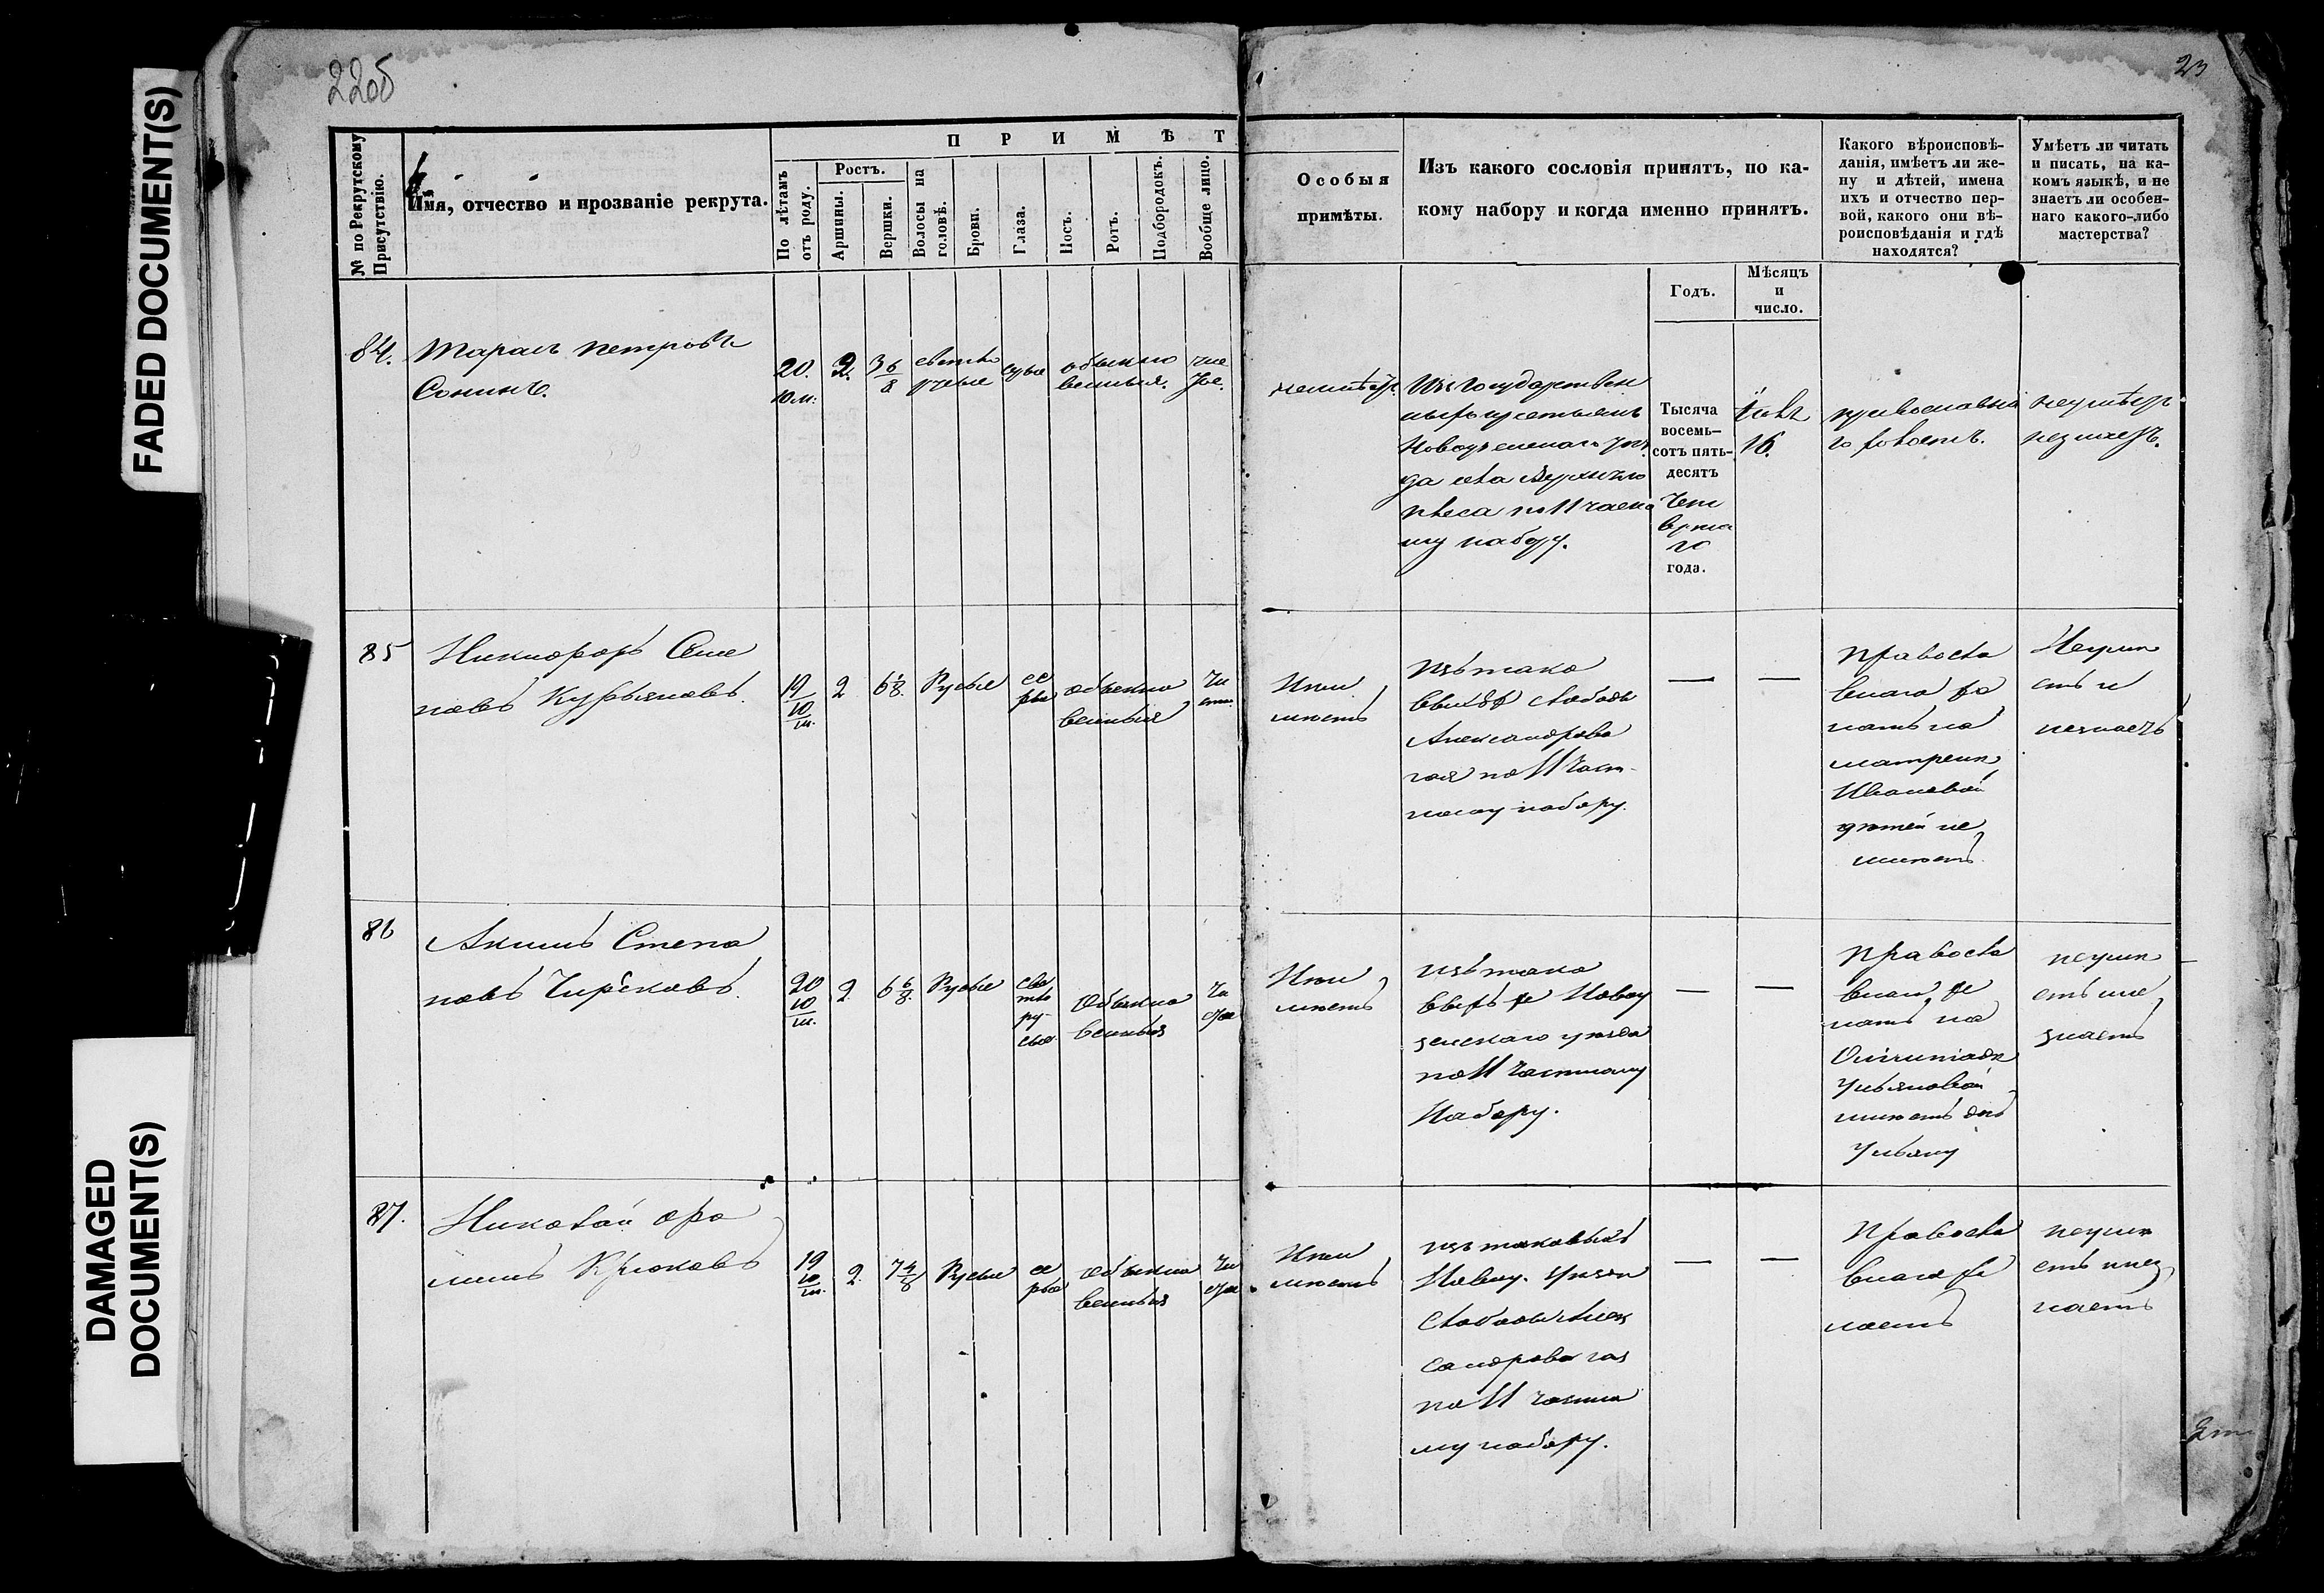 FADED DOCUMENT(S)
DAMAGED
DOCUMENT(S)
2205
23
№ по Рекрутскому
Присутствію.
Имя, отчество и прозваніе рекрута.
П Р И М Ѣ Т
По лѣтамъ
отъ роду.
Ростъ.
Аршины.
Вершки.
Волосы на
головѣ.
Брови.
Глаза.
Носъ.
Ротъ.
Подбородокъ.
Вообще лицо.
Особыя
примѣты.
Изъ какого сословія принятъ, по ка-
кому набору и когда именно принятъ.
Годъ.
Мѣсяцъ
и
число.
Какого вѣроисповѣ-
данія, имѣетъ ли же-
ну и дѣтей, имена
ихъ и отчество пер-
вой, какого они вѣ-
роисповѣданія и гдѣ
находятся?
Умѣетъ ли читать
и писать, на ка-
комъ языкѣ, и не
знаетъ ли особен-
наго какого-либо
мастерства?
84.
Тарасъ Петровъ
Сонинъ.
20.
10 м:
2.
3 6/8
светло
русые
серые
обыкно
венныя.
чис
тое.
неимѣетъ.
Изъ государствен
ныхъ крестьянъ
Новоузенскаго уѣз
да села
по 11 частно
му набору.
Тысяча
восемь-
сотъ пять-
десятъ
Чет
верта
го
года.
16.
православна
го холостъ.
неумѣетъ
незнаетъ.
85
Никифоръ Семе
новъ Курьяновъ.
19
10
м.
2
6 1/8.
Русые
се
рые
Обыкно
венныя
Чи
стое
Неи
мѣетъ
Изъ тако
выхъ слободы
Александрова
гая по 11 част-
ному набору.
— —
Православ
внаго же
натъ на
матрене
Ивановой
дѣтей не
имѣетъ
Неуме
етъ и
незнаетъ
86
Акимъ Степа
новъ Чирсковъ.
20
10
м.
2
6 6/8.
Русые
све
тло
ру-
сые
Обыкно
венныя
Чи
стое
Неи
мѣетъ
изъ тако
выхъ же Новоу
зенскаго уѣзда
по 11 частному
Набору.
— —
Правосла
внаго же
натъ на
Ульяновой
имѣетъ дочь
Ульяну
неуме
етъ ине
знаетъ
87.
Николай Фро
ловъ Крюковъ
19
10
м.
2.
7 4/8
Русые
се
рые
Обыкно
венныя
Чи
стое
Неи
мѣетъ
изъ таковыхъ
Новоу. Уѣзда
слободы Алек
сандрова гая
по 11 частно
му набору.
— —
Правосла
внаго хо
лостъ
неуме
етъ инез
наетъ